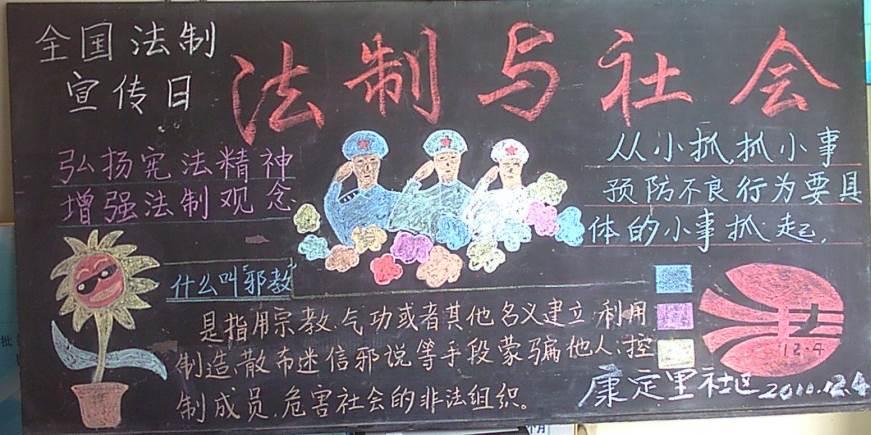 全国法制
宣传日
法制与社会
弘扬宪法精神
增强法制观念
从小抓抓小事
预防不良行为要具
体的小事抓起,
什么叫"邪教"
是指用宗教、气功或者其他名义建立,利用
制造、散布迷信邪说等手段蒙骗他人,控
制成员,危害社会的非法组织。
法
12.4
康定里社区2011.12.4